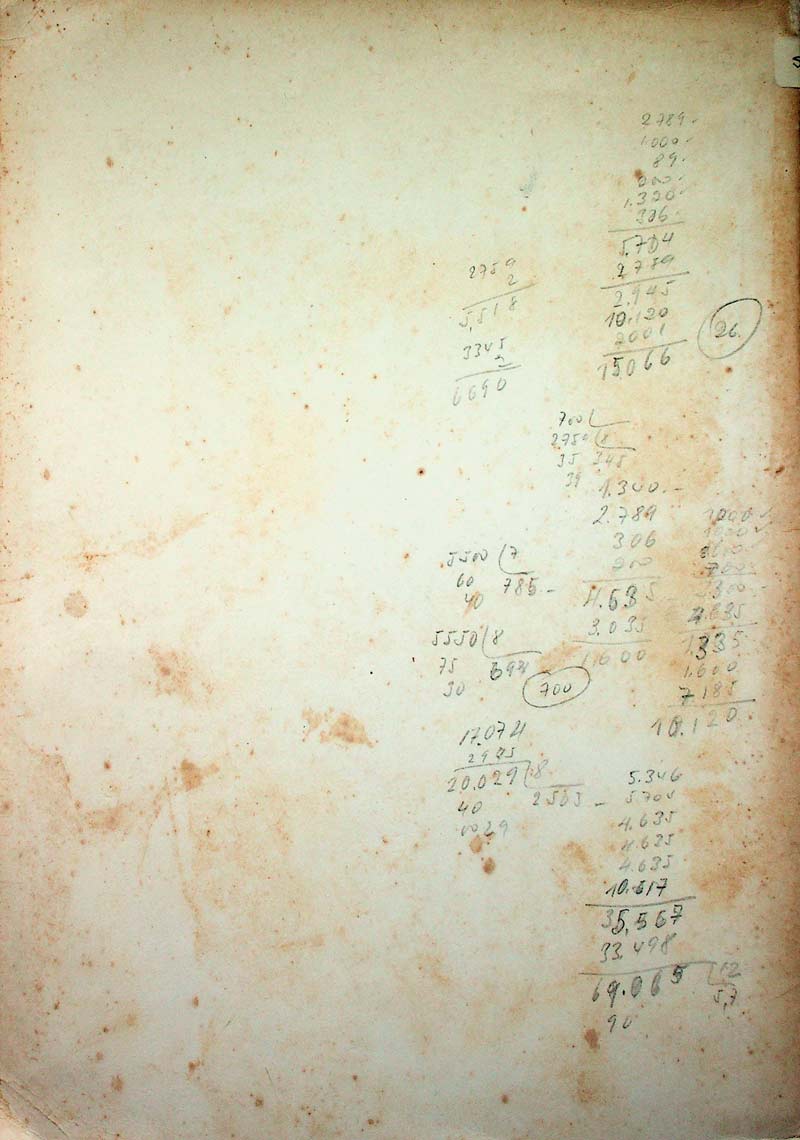 2789
1.000
89
200
1.320
306
5.704
2.789
2.945
10.120
2001
15.066
26.
2759
2
5,518
3345
2
6690
700
2759 8
35 345
39
1.340.-
2.789
306
200
4.635
3.035
1.600
1000
1000
700
4.635
1.335
1.600
7 185
10.120
5500 7
60 785-
40
5550 8
75 694
30
700
17.074
2945
20.029 8
40 2503-
0029
5.346
5.704
4.635
4.635
4.635
10.517
35,567
33.498
69.065 12
90 5,7